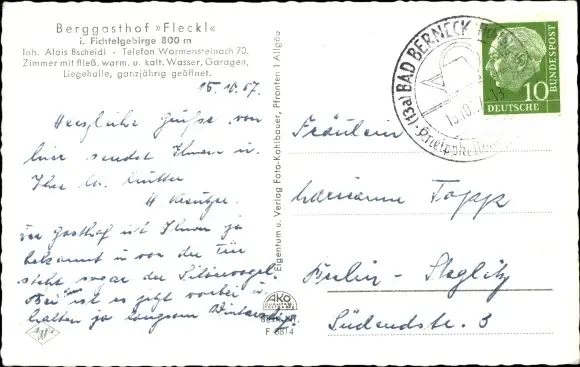 Berggasthof »Fleckl«
i. Fichtelgebirge 800 m
Inh. Alois Bscheidl - Telefon Warmensteinach 70,
Zimmer mit fließ. warm. u. kalt. Wasser, Garagen,
Liegehalle, ganzjährig geöffnet.
15.10.57.
Herzliche Grüße von
hier sendet Ihnen u.
Ihrer lb. Mutter
H
Der Gasthof ist Ihnen ja
bekannt u. vor der Tür
steht sogar der Silbervogel.
Aber ist es jetzt vorbei u.
halten ja langsam
Eigentum u. Verlag Foto-Kohlbauer, Pfronten 1 Allgäu
AKO
F 6814
Agfa
(13a) BAD BERNECK
15.10.
DEUTSCHE
BUNDESPOST
10
Fräulein
Marianne Topp
Berlin - Steglitz
Südendstr. 3